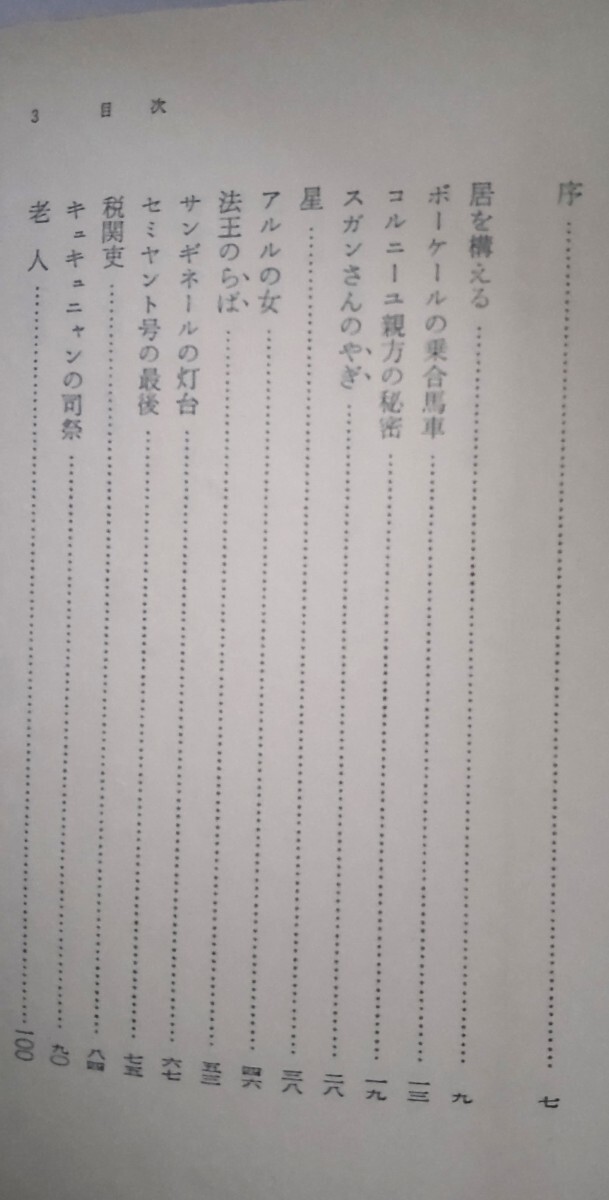 3 目次
序 七
居を構える 九
ボーケールの乗合馬車 一三
コルニーユ親方の秘密 一九
スガンさんのやぎ 二八
星 三八
アルルの女 四六
法王のらば 五三
サンギネールの灯台 六七
セミヤント号の最後 七五
税関吏 八四
キュキュニャンの司祭 九〇
老人 一〇〇